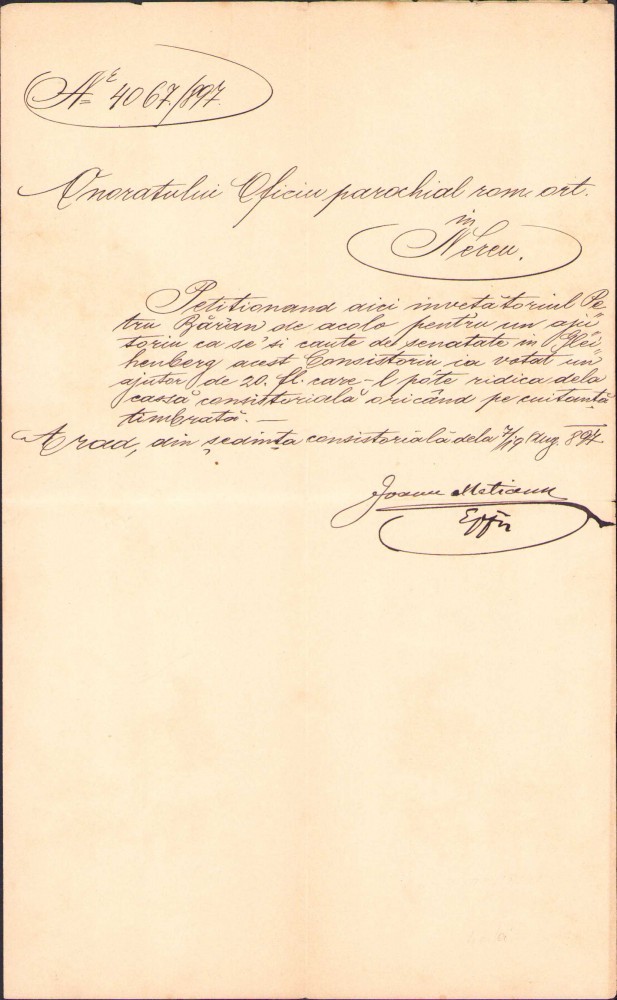 Nr 4067/897.
Onoratului Oficiu parochial rom. ort.
in
Néreu.
Petitionand aici invetătoriul Pe-
tru Bărăn de acolo pentru un aju-
toriu ca se'si caute de senatate in Glei-
henberg acest Consistoriu ia votat un
ajutor de 20. fl. care-l póte ridica dela
cassa consistorială oricând pe cuitanță
timbrată. —
Arad, din ședința consistorială dela 7/19 Aug. 897.
Joanu Metianu